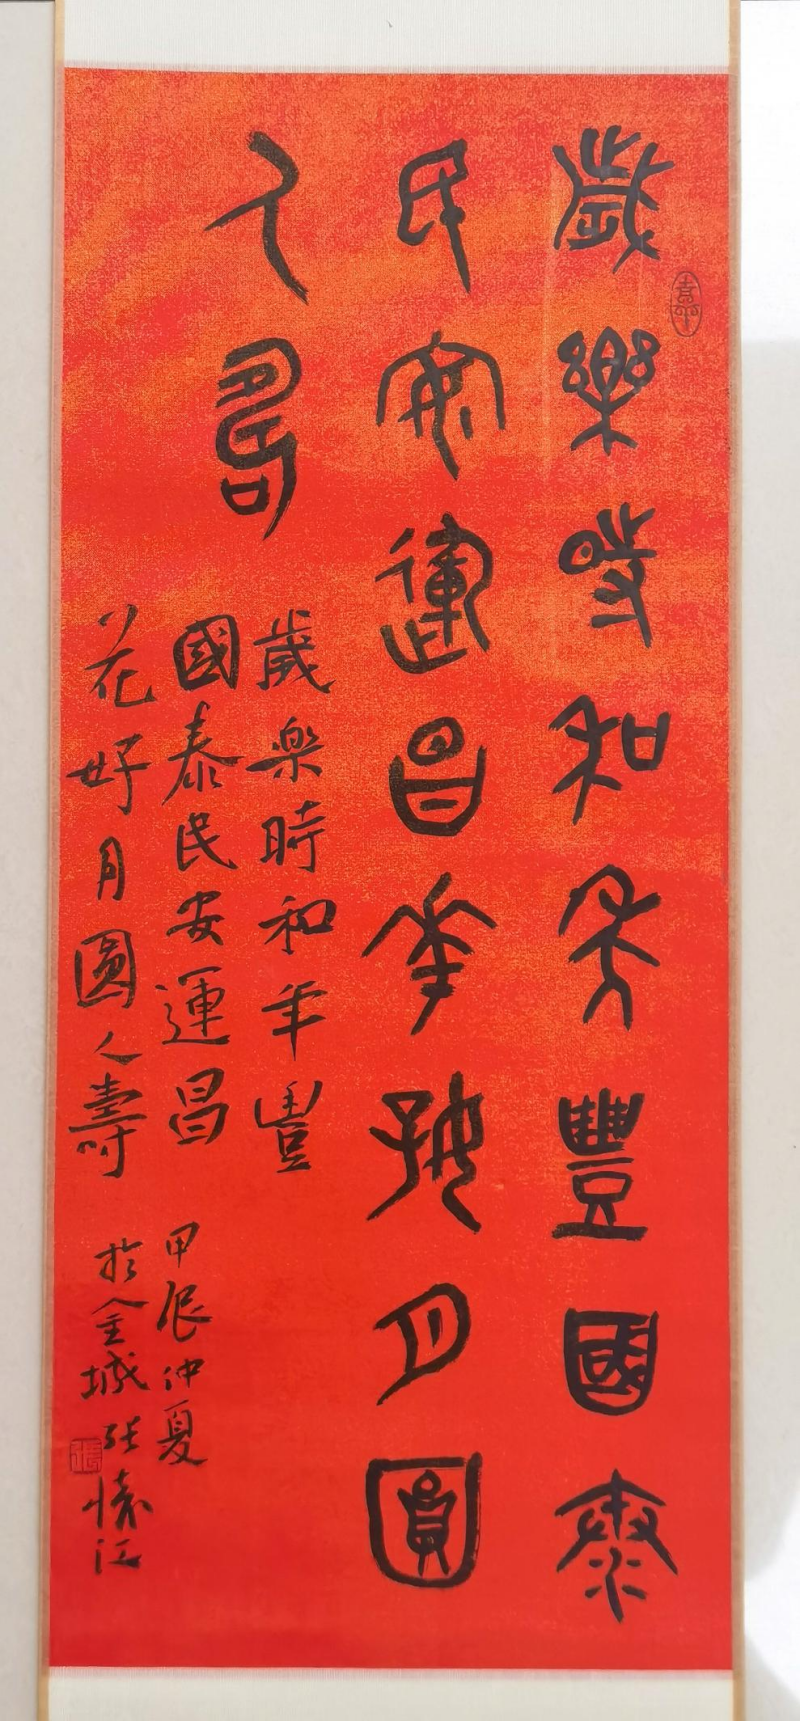 歲樂時和年豐國泰
民安運昌花好月圓
人壽
歲樂時和年豐
國泰民安運昌
花好月圓人壽
甲辰仲夏
於金城張懷江
張